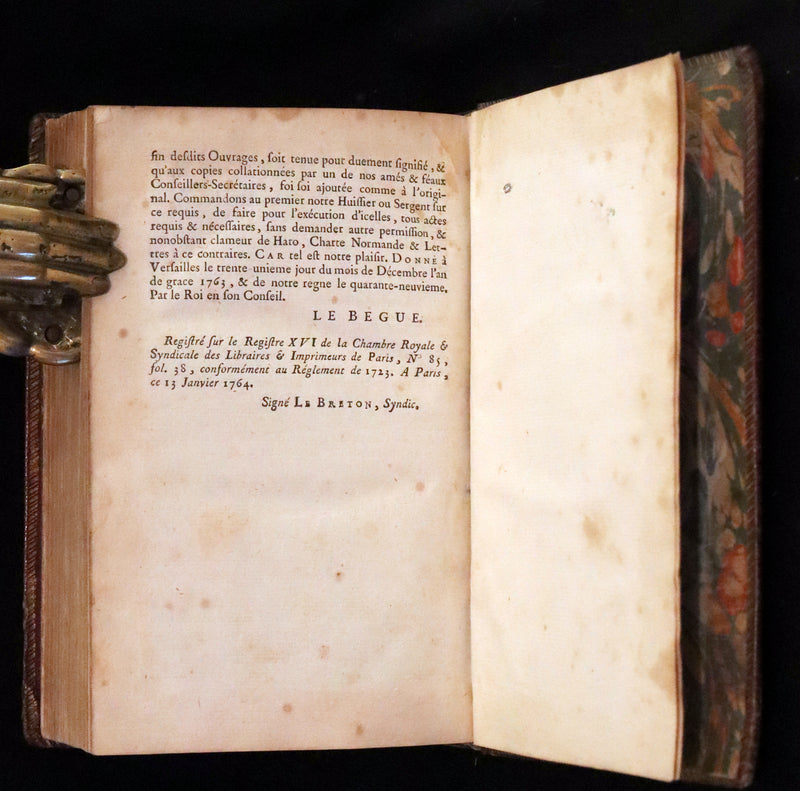 fin desdits Ouvrages, soit tenue pour duement signifié, &
qu'aux copies collationnées par un de nos amés & féaux
Conseillers-Secrétaires, foi soi ajoutée comme à l'origi-
nal. Commandons au premier notre Huissier ou Sergent sur
ce requis, de faire pour l'exécution d'icelles, tous actes
requis & nécessaires, sans demander autre permission, &
nonobstant clameur de Haro, Charte Normande & Let-
tres à ce contraires. CAR tel est notre plaisir. DONNÉ à
Versailles le trente-unieme jour du mois de Décembre l'an
de grace 1763, & de notre regne le quarante-neuvieme.
Par le Roi en son Conseil.
LE BEGUE.
Registré sur le Registre XVI de la Chambre Royale &
Syndicale des Libraires & Imprimeurs de Paris, N° 85,
fol. 38, conformément au Réglement de 1723. A Paris,
ce 13 Janvier 1764.
Signé LE BRETON, Syndic.